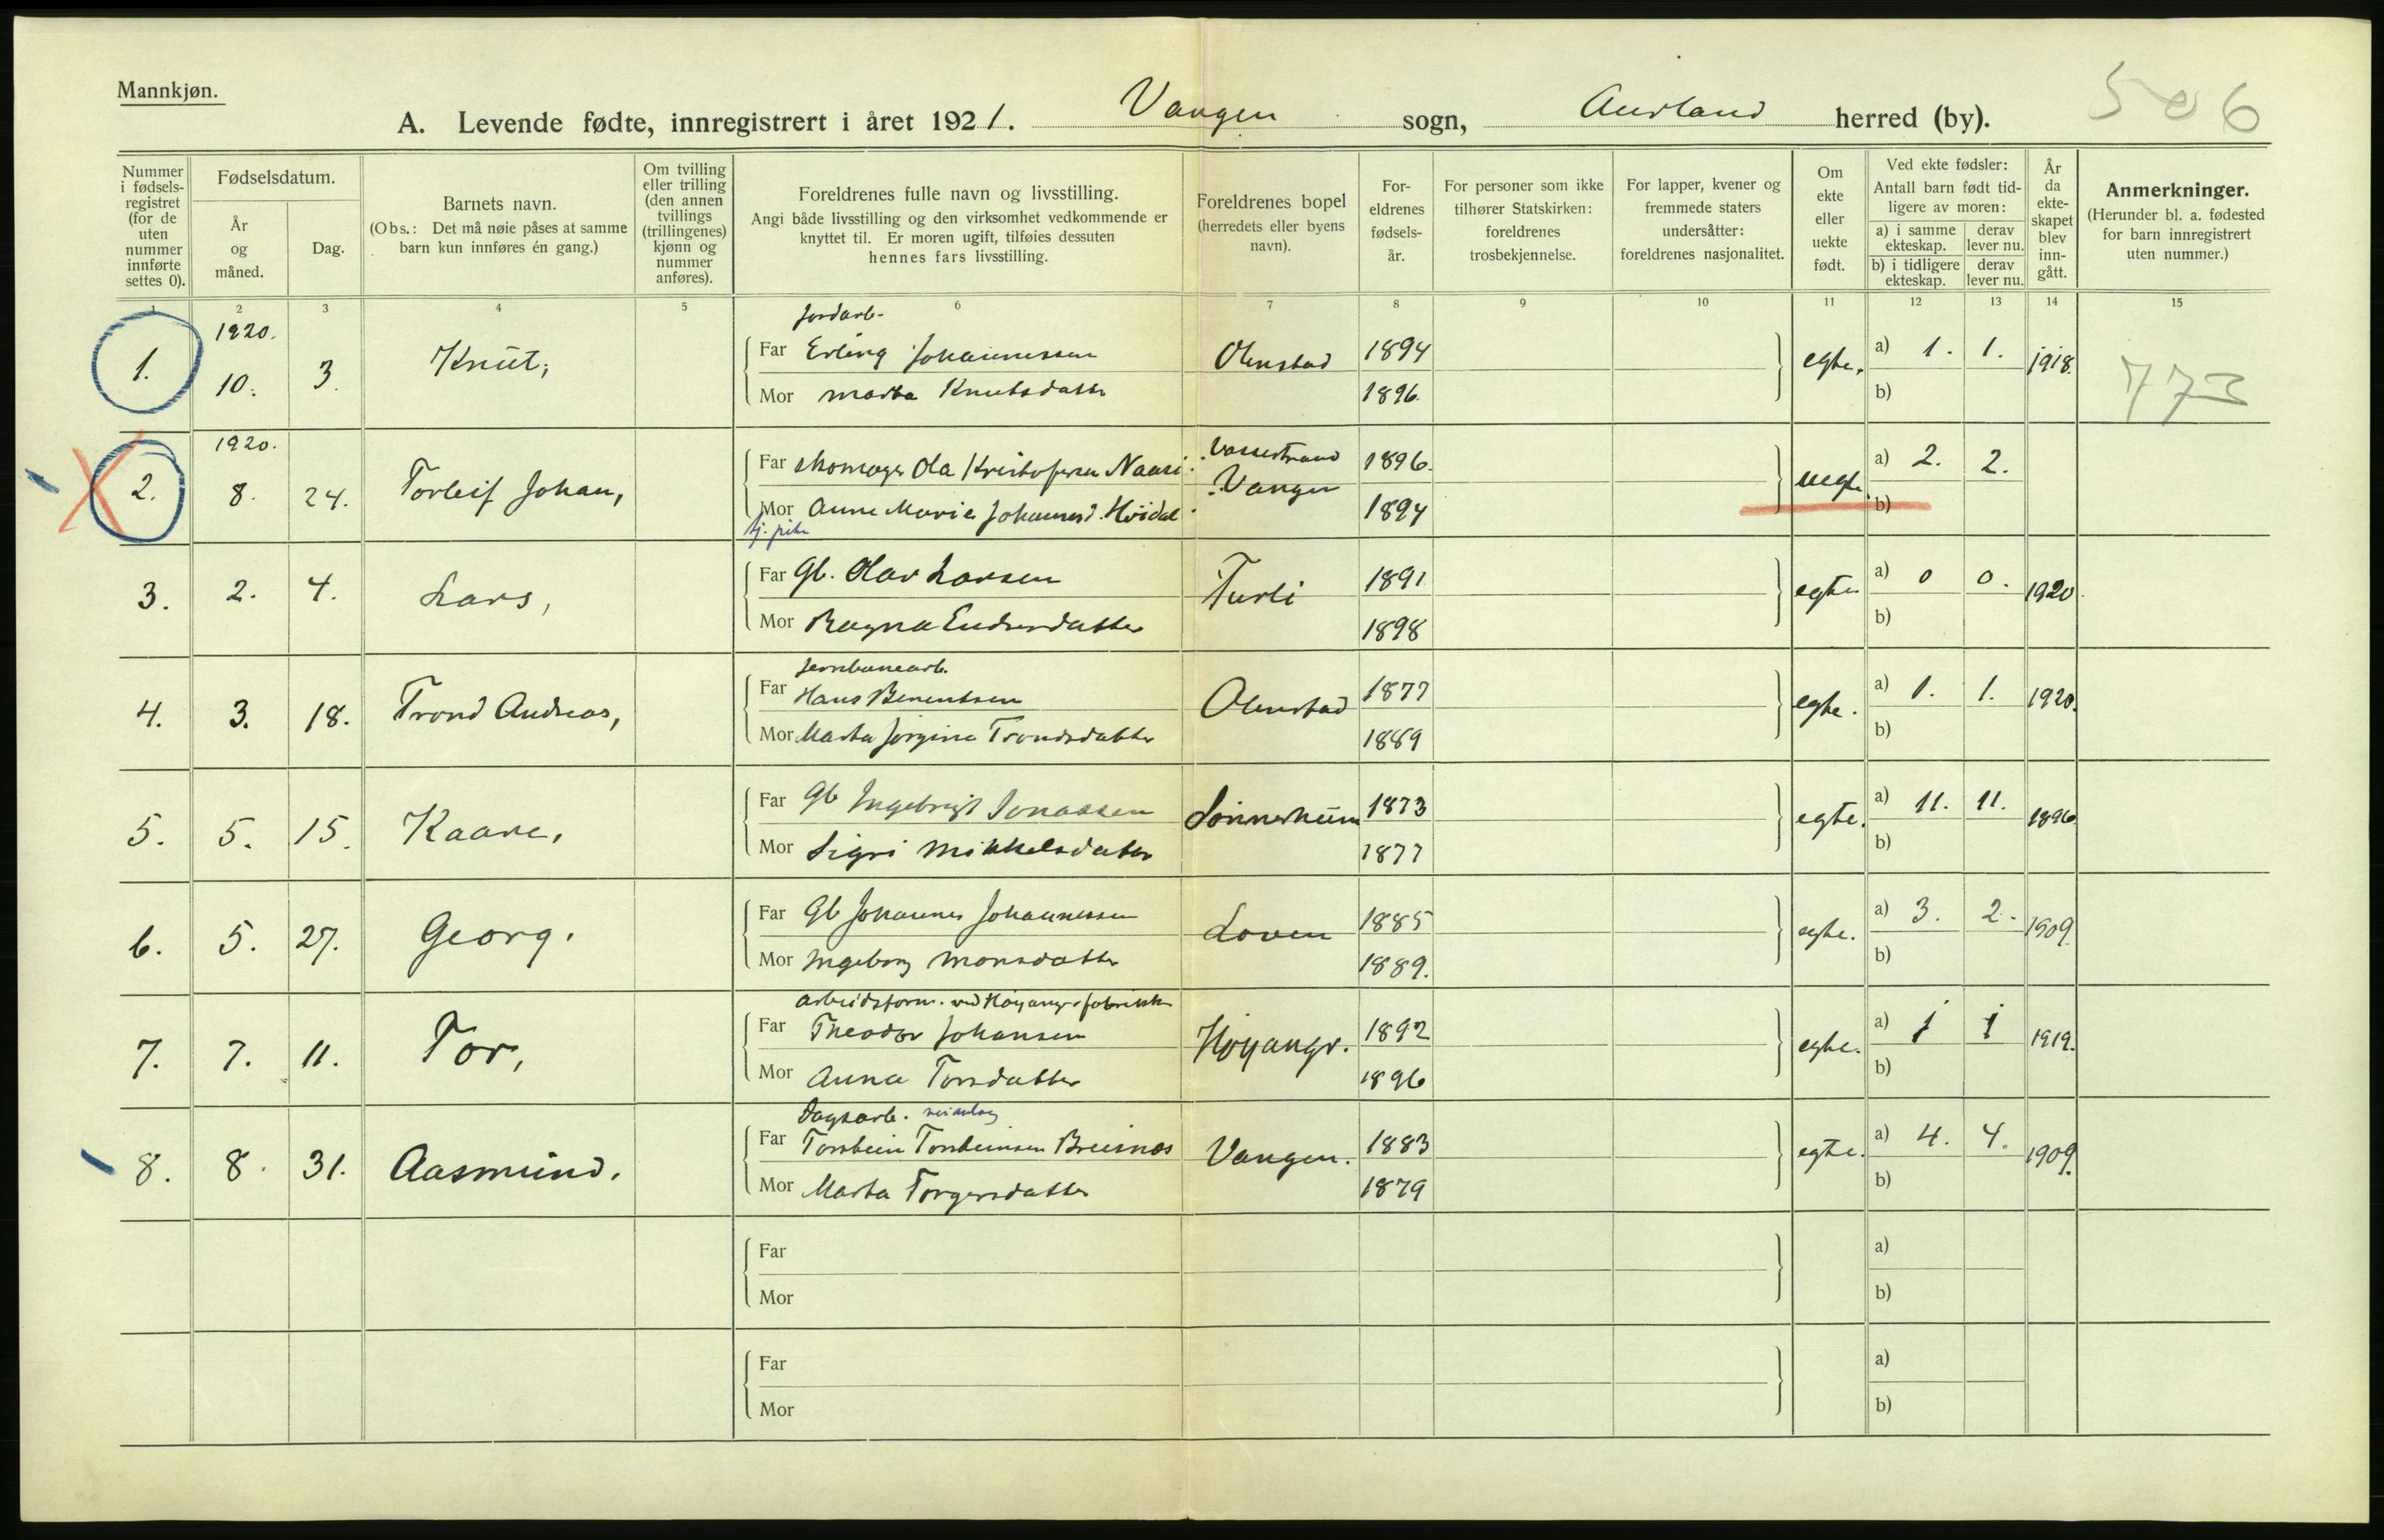 Mannkjøn.
A. Levende fødte, innregistrert i året 1921. Vangen sogn, Aurland herred (by).
506
Nummer i fødsels-registret (for de uten nummer innførte settes 0).
Fødselsdatum.
År og måned.
Dag.
Barnets navn.
(Obs.: Det må nøie påses at samme barn kun innføres én gang.)
Om tvilling eller trilling (den annen tvillings (trillingenes) kjønn og nummer anføres).
Foreldrenes fulle navn og livsstilling.
Angi både livsstilling og den virksomhet vedkommende er knyttet til. Er moren ugift, tilføies dessuten hennes fars livsstilling.
Foreldrenes bopel (herredets eller byens navn).
For-eldrenes fødsels-år.
For personer som ikke tilhører Statskirken: foreldrenes trosbekjennelse.
For lapper, kvener og fremmede staters undersåtter: foreldrenes nasjonalitet.
Om ekte eller uekte født.
Ved ekte fødsler:
Antall barn født tid-ligere av moren:
a) i samme ekteskap.
derav lever nu.
b) i tidligere ekteskap.
derav lever nu.
År da ekte-skapet blev inn-gått.
Anmerkninger.
(Herunder bl. a. fødested for barn innregistrert uten nummer.)
1 2 3 4 5 6 7 8 9 10 11 12 13 14 15
Jordarb.
1. 1920. 10. 3. Knut, Far Erling Johannessen Olenstad 1894 egte. a) 1. 1. 1918. 773
Mor Marta Knutsdatter 1896. b)
2. 1920. 8. 24. Torleif Johan, Far skomager Ola Kristofersen Naasi Vossestrand 1896. uegte. a) 2. 2.
Mor Anne Marie Johannesd. Hvidal Vangen 1894 b)
tj. pike
3. 2. 4. Lars, Far Gb. Olav Larsen Turli 1891 egte a) 0 0. 1920.
Mor Ragna Endresdatter 1898 b)
Jernbanearb.
4. 3. 18. Trond Andreas, Far Hans Berentsen Olenstad 1877 egte. a) 1. 1. 1920.
Mor Marta Jørgine Trondsdatter 1889 b)
5. 5. 15. Kaare, Far Gb Ingebrigt Jonassen Sønnerheim 1873 egte. a) 11. 11. 1896
Mor Sigri Mikkelsdatter 1877 b)
6. 5. 27. Georg. Far Gb Johannes Johannessen Loven 1885 egte. a) 3. 2. 1909.
Mor Ingeborg Monsdatter 1889. b)
arbeidsform. ved Høyangr fabrikk
7. 7. 11. Tor, Far Theodor Johansen Høyangr. 1892 egte. a) 1 1 1919.
Mor Anna Torsdatter 1896 b)
Dagsarb.
8. 8. 31. Aasmund. Far Torstein Torsteinsen Breisnes Vangen. 1883 egte. a) 4. 4. 1909.
Mor Marta Torgersdatter 1879 b)
Far a)
Mor b)
Far a)
Mor b)